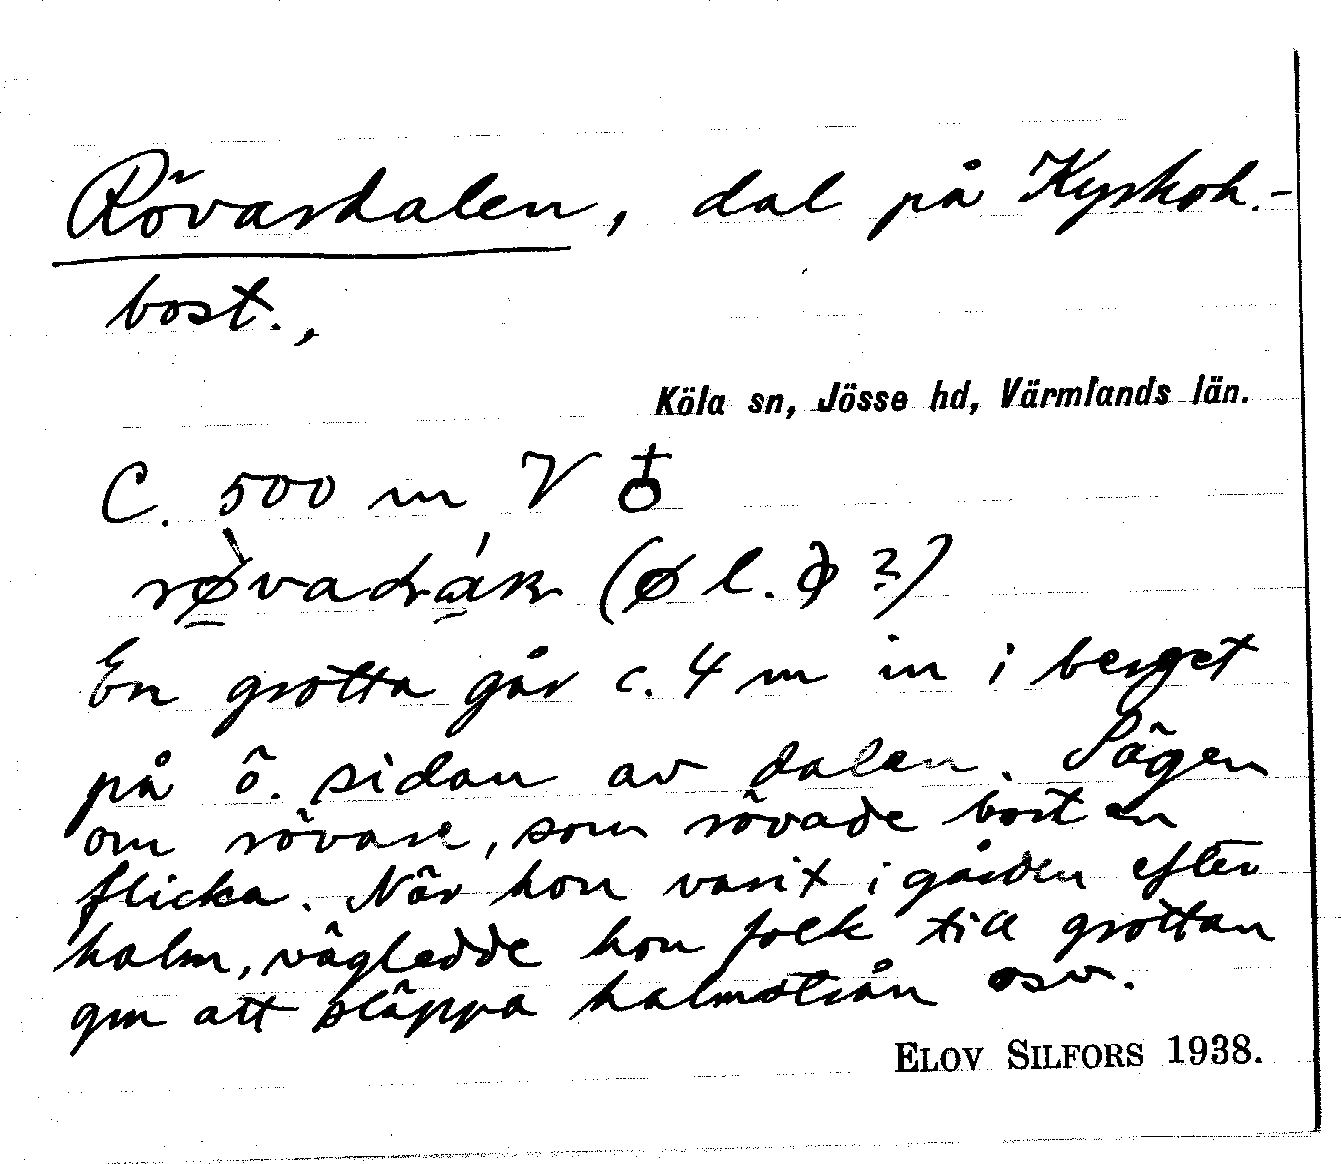 Rövardalen, dal på Kyrkoh.-
bost.,
Köla sn, Jösse hd, Värmlands län.
C. 500 m V ♁
(ø l. ?)
En grotta går c. 4 m in i berget
på ö. sidan av dalen. Sägen
om rövare, som rövade bort en
flicka. När hon varit i gården efter
halm, vägledde hon folk till grottan
gm att släppa halmstrån osv.
ELOV SILFORS 1938.